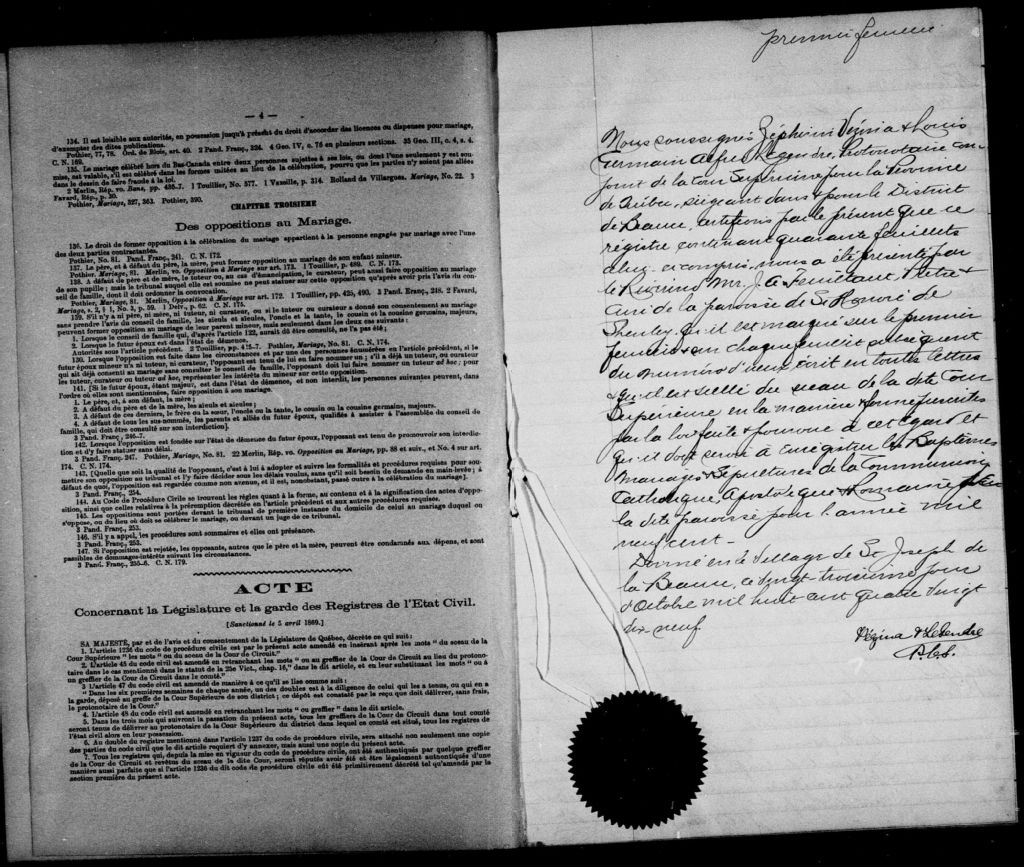 — 4 —
134. Il est loisible aux autorités, en possession jusqu'à présent du droit d'accorder des licences ou dispenses pour mariage,
d'exempter des dites publications.
Pothier, 77, 78. Ord. de Blois, art. 40. 2 Pand. Franç., 324. 4 Geo. IV, c. 75 en plusieurs sections. 35 Geo. III, c. 4, s. 4.
C. N. 169.
135. Le mariage célébré hors du Bas-Canada entre deux personnes sujettes à ses lois, ou dont l'une seulement y est sou-
mise, est valable, s'il est célébré dans les formes usitées au lieu de la célébration, pourvu que les parties n'y soient pas allées
dans le dessin de faire fraude à la loi.
2 Merlin, Rép. vo Bans, pp. 436-7. 1 Touillier, No. 577. 1 Vazeille, p. 314. Rolland de Villargues, Mariage, No. 22. 3
Favard, Rép., p. 20.
Pothier, Mariage, 327, 363. Pothier, 390.
CHAPITRE TROISIEME
Des oppositions au Mariage.
136. Le droit de former opposition à la célébration du mariage appartient à la personne engagée par mariage avec l'une
des deux parties contractantes.
Pothier, No. 81. Pand. Franç., 241. C. N. 172.
137. Le père, et à défaut du père, la mère, peut former opposition au mariage de son enfant mineur.
Pothier, Mariage, 81. Merlin, vo. Opposition à Mariage sur art. 173. 1 Touillier, p. 489. C. N. 173.
138. A défaut de père et de mère, le tuteur ou, au cas d'émancipation, le curateur, peut aussi faire opposition au mariage
de son pupille; mais le tribunal auquel elle est soumise ne peut statuer sur cette opposition qu'après avoir pris l'avis du con-
seil de famille, dont il doit ordonner la convocation.
Pothier, Mariage, 81. Merlin, Opposition à Mariage sur art. 172. 1 Touillier, pp. 425, 490. 3 Pand. Franç., 248. 2 Favard,
Mariage, s. 2, § 1, No. 3, p. 59. 1 Delv., p. 62. C. N. 175.
139. S'il n'y a ni père, ni mère, ni tuteur, ni curateur, ou si le tuteur ou curateur a donné son consentement au mariage
sans prendre l'avis du conseil de famille, les aïeuls et aïeules, l'oncle et la tante, le cousin et la cousine germains, majeurs,
peuvent former opposition au mariage de leur parent mineur, mais seulement dans les deux cas suivants:
1. Lorsque le conseil de famille qui, d'après l'article 122, aurait dû être consulté, ne l'a pas été;
2. Lorsque le futur époux est dans l'état de démence.
Autorités sous l'article précédent. 2 Touillier, pp. 415-7. Pothier, Mariage, No. 81. C. N. 174.
130. Lorsque l'opposition est faite dans les circonstances et par une des personnes énumérées en l'article précédent, si le
futur époux mineur n'a ni tuteur, ni curateur, l'opposant est tenu de lui en faire nommer un; s'il a déjà un tuteur, ou curateur
qui ait déjà consenti au mariage sans consulter le conseil de famille, l'opposant doit lui faire nommer un tuteur ad hoc; pour
les tuteur, curateur ou tuteur ad hoc, représenter les intérêts du mineur sur cette opposition.
141. [Si le futur époux, étant majeur, est dans l'état de démence, et non interdit, les personnes suivantes peuvent, dans
l'ordre où elles sont mentionnées, faire opposition à son mariage.
1. Le père, et, à son défaut, la mère;
2. A défaut du père et de la mère, les aïeuls et aïeules;
3. A défaut de ces derniers, le frère ou la sœur, l'oncle ou la tante, le cousin ou la cousine germains, majeurs.
4. A défaut de tous les sus-nommés, les parents et alliés du futur époux, qualifiés à assister à l'assemblée du conseil de
famille, qui doit être consulté sur son interdiction].
3 Pand. Franç., 246-7.
142. Lorsque l'opposition est fondée sur l'état de démence du futur époux, l'opposant est tenu de promouvoir son interdic-
tion et d'y faire statuer sans délai.
3 Pand. Franç. 247. Pothier, Mariage, No. 81. 22 Merlin, Rép. vo. Opposition au Mariage, pp. 88 et suiv., et No. 4 sur art.
174. C. N. 174.
143. [Quelle que soit la qualité de l'opposant, c'est à lui à adopter et suivre les formalités et procédures requises pour sou-
mettre son opposition au tribunal et l'y faire décider sous les délais voulus, sans qu'il soit besoin de demande en main-levée; à
défaut de quoi, l'opposition est regardée comme non avenue, et il est, nonobstant, passé outre à la célébration du mariage].
3 Pand. Franç., 254.
144. Au Code de Procédure Civile se trouvent les règles quant à la forme, au contenu et à la signification des actes d'oppo-
sition, ainsi que celles relatives à la préremption décrétée en l'article précédent et aux autres procédures requises.
145. Les oppositions sont portées devant le tribunal de première instance du domicile de celui au mariage duquel on
s'oppose, ou du lieu où doit se célébrer le mariage, ou devant un juge de ce tribunal.
3 Pand. Franç., 253.
146. S'il y a appel, les procédures sont sommaires et elles ont préséance.
3 Pand. Franç., 253.
147. Si l'opposition est rejetée, les opposants, autres que le père et la mère, peuvent être condamnés aux dépens, et sont
passibles de dommages-intérêts suivant les circonstances.
3 Pand. Franç., 255-6. C. N. 179.
ACTE
Concernant la Législature et la garde des Registres de l'Etat Civil.
[Sanctionné le 5 avril 1869.]
SA MAJESTÉ, par et de l'avis et du consentement de la Législature de Québec, décrète ce qui suit:
1. L'article 1236 du code de procédure civile est par le présent acte amendé en insérant après les mots " du sceau de la
Cour Supérieure " les mots " ou du sceau de la Cour de Circuit."
2. L'article 45 du code civil est amendé en retranchant les mots " ou au greffier de la Cour de Circuit au lieu du protono-
taire dans le cas mentionné dans le statut de la 25e Vict., chap. 16," dans le dit article, et en leur substituant les mots " ou à
un greffier de la Cour de Circuit dans le comté."
3 L'article 47 du code civil est amendé de manière à ce qu'il se lise comme suit:
" Dans les six premières semaines de chaque année, un des doubles est à la diligence de celui qui les a tenus, ou qui en a
la garde, déposé au greffe de la Cour Supérieure de son district; ce dépôt est constaté par le reçu que doit délivrer, sans frais,
le protonotaire de la Cour."
4. L'article 48 du code civil est amendé en retranchant les mots " ou greffier " dans le dit article.
5. Dans les trois mois qui suivront la passation du présent acte, tous les greffiers de la Cour de Circuit dans tout comté
seront tenus de délivrer au protonotaire de la Cour Supérieure du district dans lequel ce comté est situé, tous les registres de
l'état civil alors en leur possession.
6. Au double du registre mentionné dans l'article 1237 du code de procédure civile, sera attaché non seulement une copie
des parties du code civil que le dit article requiert d'y annexer, mais aussi une copie du présent acte.
7. Tous les registres qui, depuis la mise en vigueur du code de procédure civile, ont été authentiqués par quelque greffier
de la Cour de Circuit et revêtus du sceau de la dite Cour, seront réputés avoir été et être légalement authentiqués d'une
manière aussi parfaite que si l'article 1236 du dit code de procédure civile eût été primitivement décrété tel qu'amendé par la
section première du présent acte.
premier feuillet
Nous soussignés Zéphirin Vézina & Louis
Germain Alfred Legendre, Protonotaire con-
joint de la Cour Supérieure pour la Province
de Québec, siégeant dans & pour le District
de Beauce, certifions par le présent que ce
régistre contenant quarante feuillets
celui-ci compris, nous a été présenté par
le Révérend Mr. J. A. Feuiltault, Ptre &
Curé de la paroisse de St Honoré de
Shenley, qu'il est marqué sur le premier
feuillet & sur chaque feuillet subséquent
du numéro d'icelui écrit en toutes lettres
& qu'il est scellé du sceau de la dite Cour
Supérieure en la manière & forme prescrites
par la loi faite & pourvue à cet égard et
qu'il doit servir à enrégistrer les Baptêmes
Mariages & Sépultures de la Communion
Catholique, Apostolique & Romaine en
la dite paroisse pour l'année mil
neuf cent -
Donné en le Village de St Joseph de
la Beauce, ce vingt troisième jour
d'Octobre mil huit cent quatre vingt
dix-neuf
Vézina & Legendre
P.C.S.